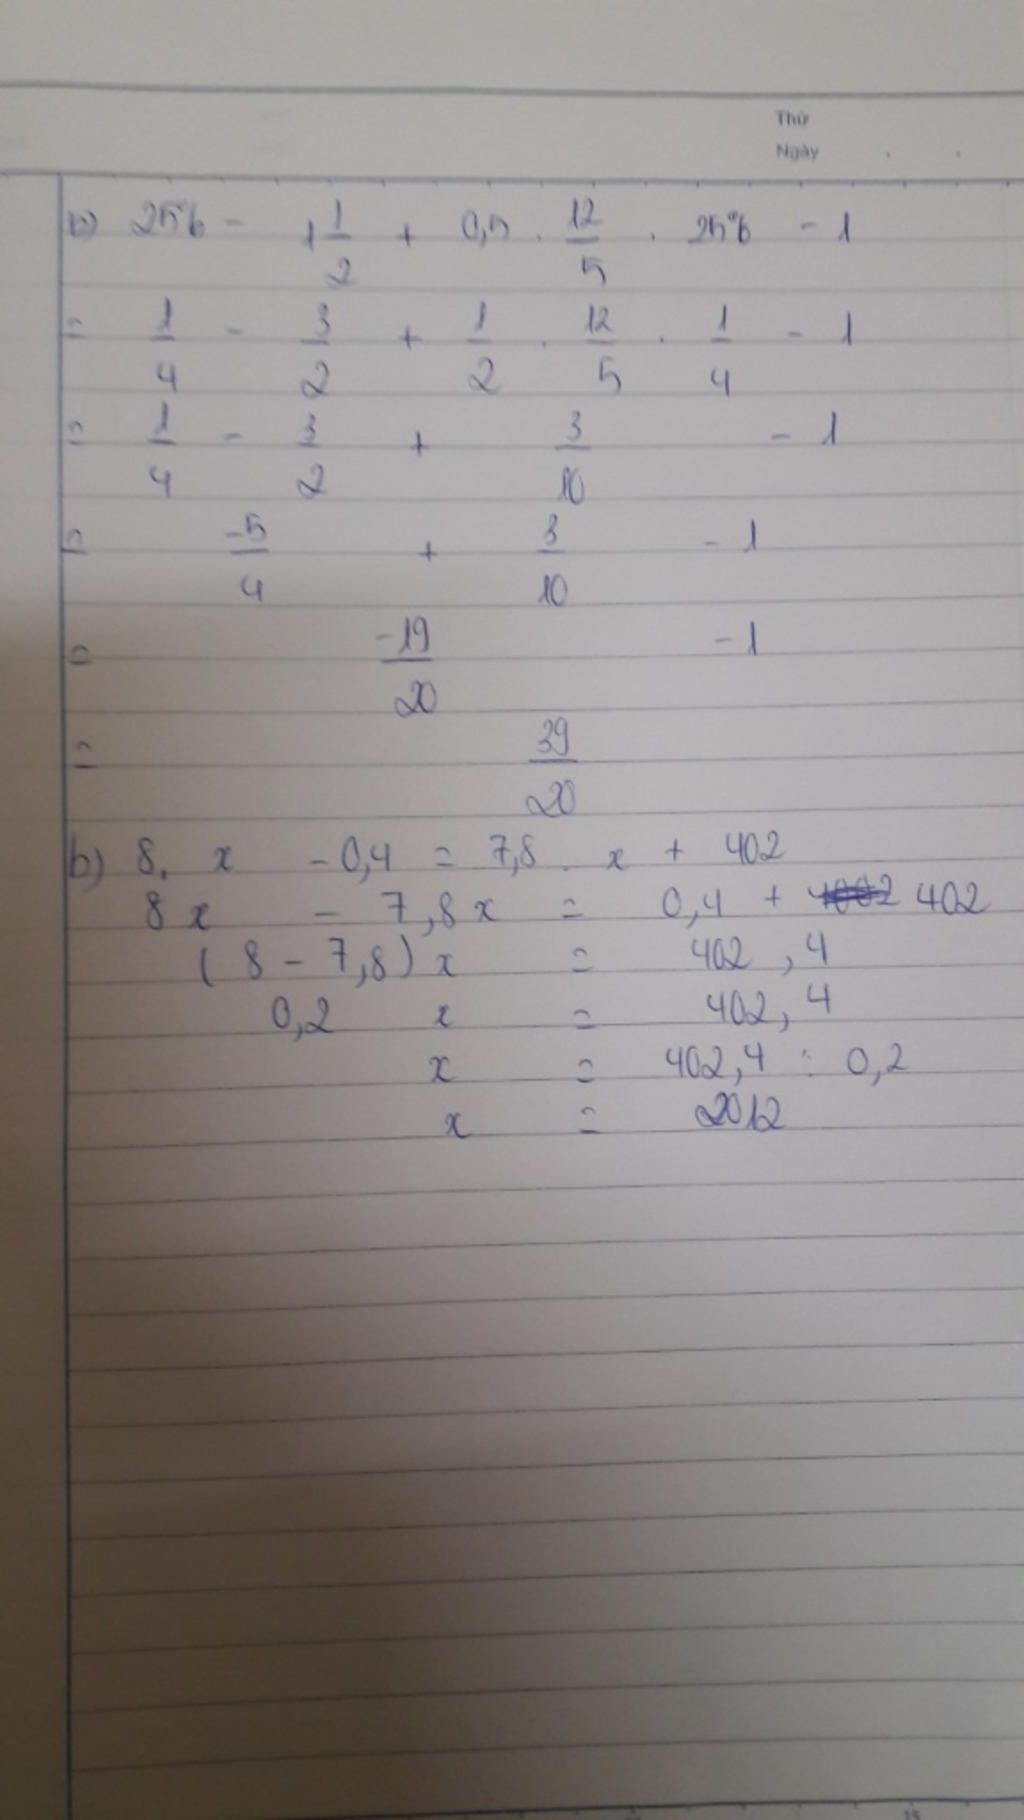 Thứ
Ngày . .
a) 25% - 1 1/2 + 0,5 . 12/5 . 25% - 1
= 1/4 - 3/2 + 1/2 . 12/5 . 1/4 - 1
= 1/4 - 3/2 + 3/10 - 1
= -5/4 + 3/10 - 1
= -19/20 - 1
= 39/20
b) 8. x - 0,4 = 7,8 . x + 402
8x - 7,8x = 0,4 + 402
(8 - 7,8) x = 402,4
0,2 x = 402,4
x = 402,4 : 0,2
x = 2012